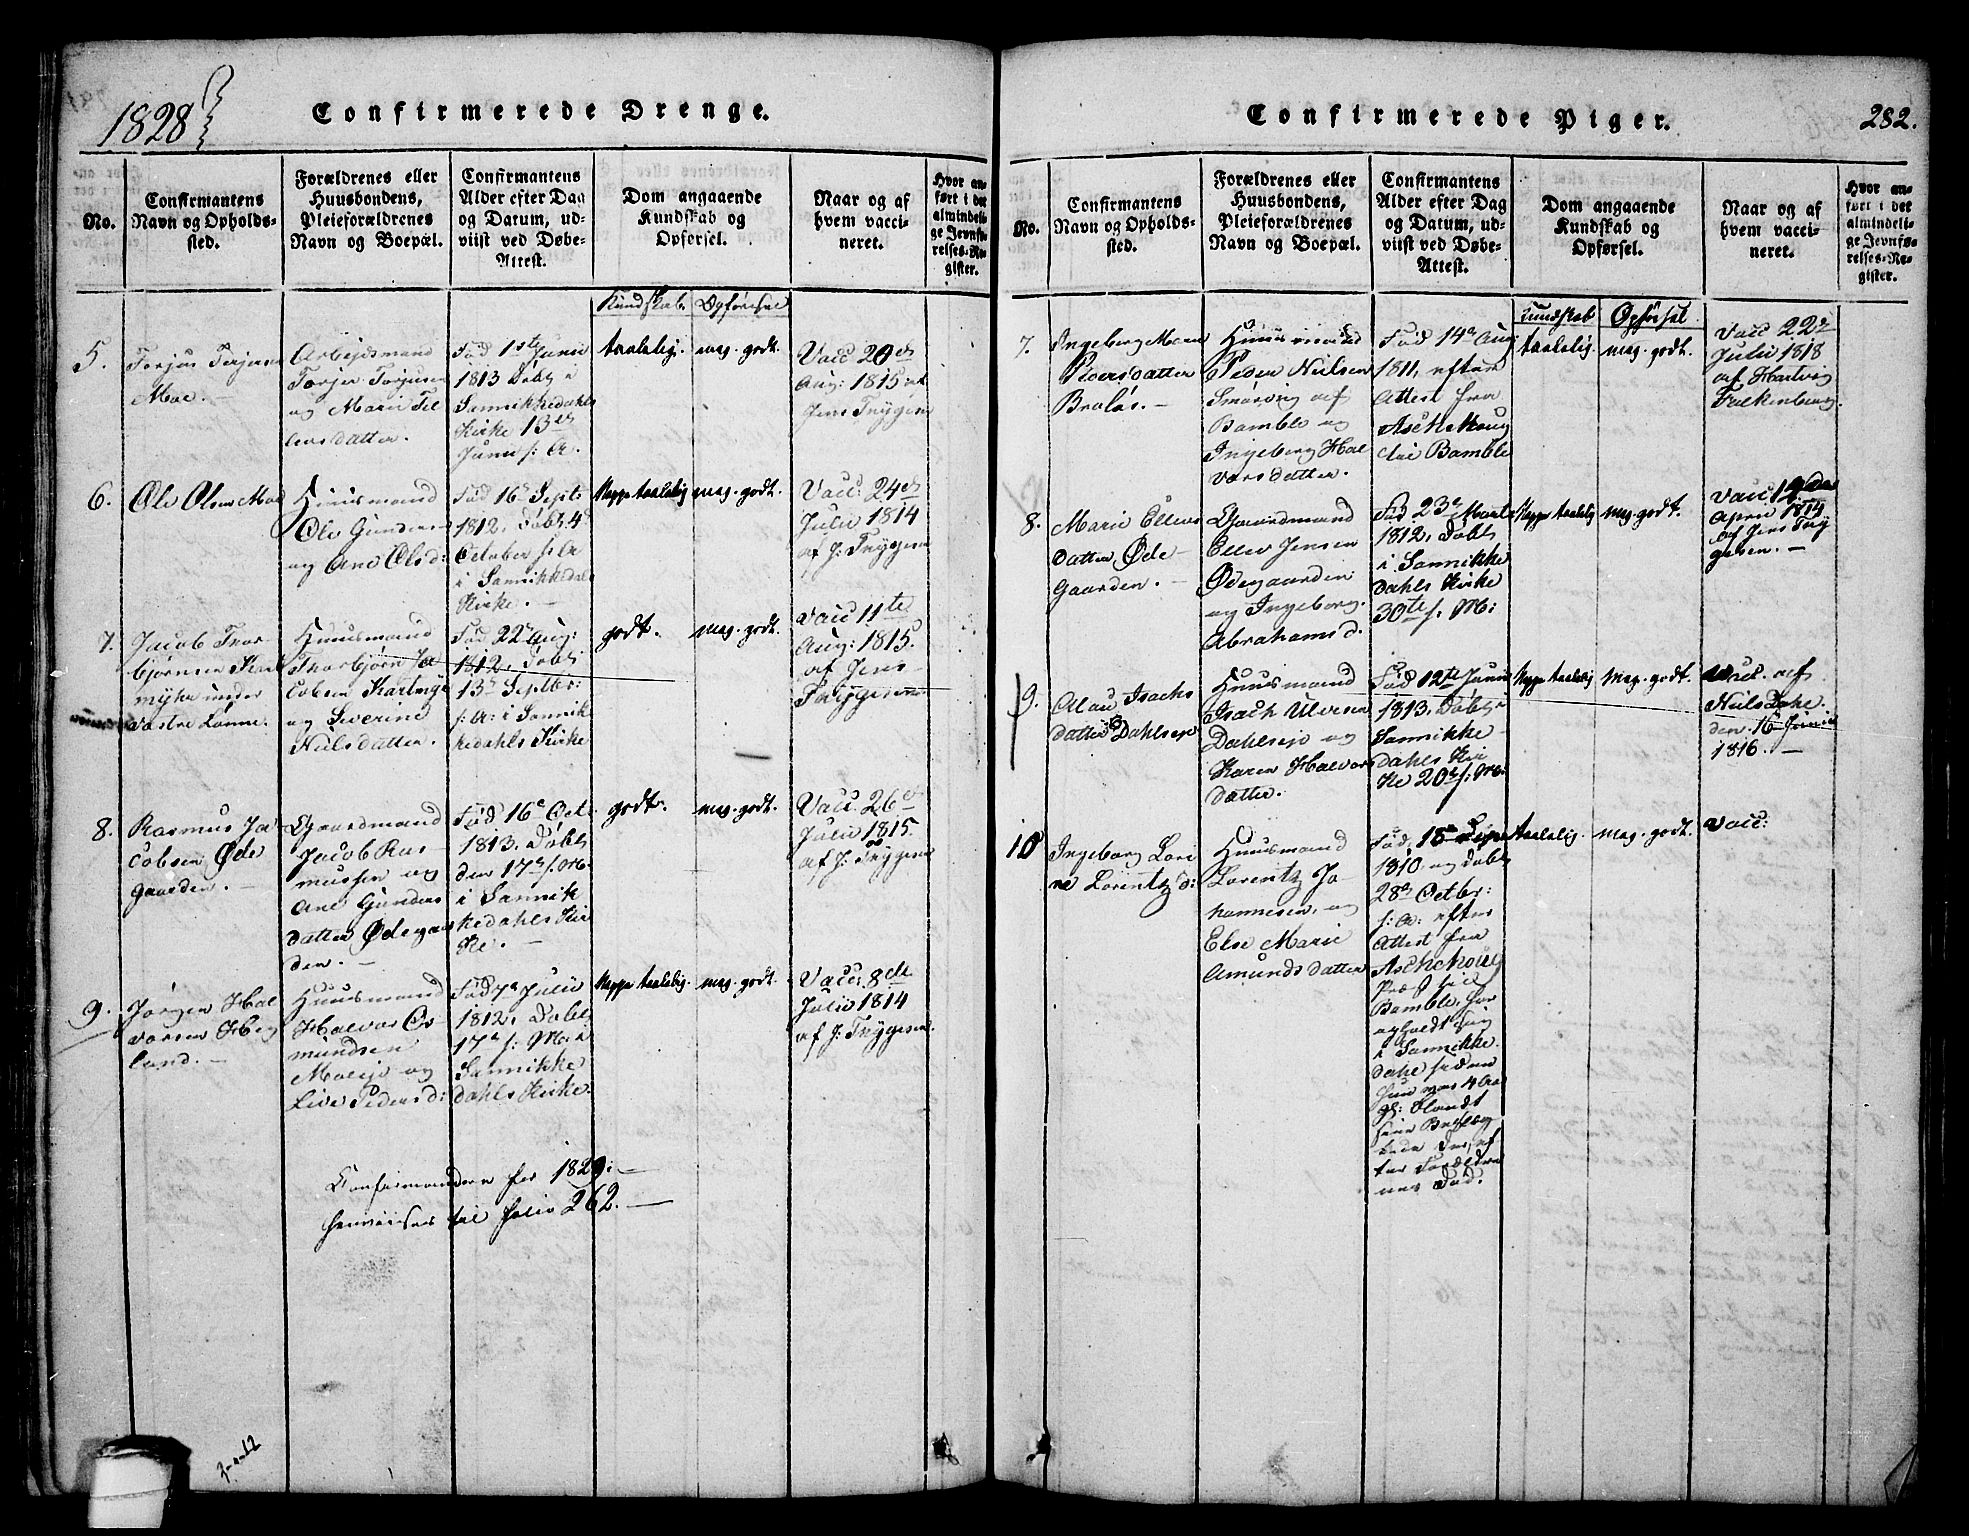 1828
Confirmerede Drenge.
No.
Confirmantens
Navn og Opholds-
sted.
Forældrenes eller
Huusbondens,
Pleieforældrenes
Navn og Boepæl.
Confirmantens
Alder efter Dag
og Datum, ud-
viist ved Døbe-
Attest.
Dom angaaende
Kundskab og
Opførsel.
Naar og af
hvem vacci-
neret.
Hvor an-
ført i det
almindeli-
ge Jevnfø-
relses-Re-
gister.
Kundskab. Opførsel
5.
Torjus Terjesen
Moe. —
Arbejdsmand
Terjer Torjusen
og Marie Tel
lefsdatter.
Fød 1ste Junii
1813 Døbt i
Sannikkedahls
Kirke 13de
Junii s: A.
taalelig.
meg. godt.
Vacc 20de
Aug: 1815 af
Jens Trygesen
6.
Ole Olsen Moe
Huusmand
Ole Gunders:
og Ane Olsd:
Fød 16de Sept:
1812. Døbt 4de
October s: A
i Sannikkedals
Kirke. —
Neppe taalelig
meg. godt.
Vacc: 24de
Julii 1814
af J: Trygesen
7.
Jacob Thor-
bjørnsen Kart
myhr under
Vestre Lønne.
Huusmand
Thorbjørn Ja
cobsen Kartmyhr
og Severine
Nielsdatter.
Fød 22de Aug:
1812. Døbt
13de Septbr:
s: A: i Sannik
kedahls Kirke
godt.
meg. godt.
Vacc 11te
Aug: 1815.
af Jens
Tryggesen
8.
Rasmus Ja
cobsen Øde
gaarden. —
Gaardmand
Jacob Ras-
mussen og
Ane Gunders
datter Ødegaar
den. —
Fød 16de Oct:
1813. Døbt
den 17de s: M:
i Sannik
kedahls Kir
ke. —
godt.
meg. godt.
Vacc: 26de
Julii 1815.
af J: Trygesen
9.
Jørgen Hal
vorsen Heg
land. —
Huusmand
Halvor Os-
mundsen
Moeisje og
Live Pedersd:
Fød 7de Julii
1812. Døbt
17de s: M: i
Sannikke
dahls Kirke.
Neppe taalelig.
meg. godt.
Vacc: 8de
Julii 1814
af J: Trygesen.
Confirmanderne for 1829: —
henviises til folio 262. —
Confirmerede Piger.
282.
No.
Confirmantens
Navn og Opholds-
sted.
Forældrenes eller
Huusbondens,
Pleieforældrenes
Navn og Boepæl.
Confirmantens
Alder efter Dag
og Datum, ud-
viist ved Døbe-
Attest.
Dom angaaende
Kundskab og
Opførsel.
Naar og af
hvem vacci-
neret.
Hvor an-
ført i det
almindeli-
ge Jevnfø-
relses-Re-
gister.
Kundskab Opførsel.
7.
Ingeborg Maren
Pedersdatter
Braaås. —
Huusmand
Peder Nielsen
Smørvig af
Bamble og
Ingeborg Hal
vorsdatter.
Fød 14de Aug:
1811, efter
Attest fra
Aschehoug
til Bamble
taalelig.
meg. godt.
Vacc 22de
Julii 1818
af Hartvig
Falkenberg.
8.
Marie Ellevs
datter Øde-
gaarden. —
Gaardmand
Ellev Jensen
Ødegaarden
og Ingeborg
Abrahamsd.
Fød 23de Marts
1812. Døbt
i Sannikke
dahls Kirke
30te s: M:
Neppe taalelig
meg. godt.
April 1814
af Jens Try
gesen. —
9.
Olau Isachs
datter Dahlseje
Huusmand
Isach Ulvesen
Dahlseje og
Karen Halvors
datter.
Fød 12te Junii
1813. Døbt i
Sannikke-
dahls Kir
ke 20de s: M:
Neppe taalelig
Meg. godt.
Vacc. af
Niels Dahl.
den 16 Junii
1816. —
10
Ingeborg Lori
ne Lorentz d:
Huusmand
Lorentz Jo
hannesen, og
Else Marie
Amundsdatter
1810 og Døbt
28de Octbr:
s: A: efter
Attest fra
Aschehoug
Præst til
Bamble, har
opholdt sig
i Sannikke-
dahl siden
hun var 4 Aar
gl: blandt
sine Beslæg
tede der, ef
ter Forældre
nes Død.
taalelig.
meg. godt.
Vacc: